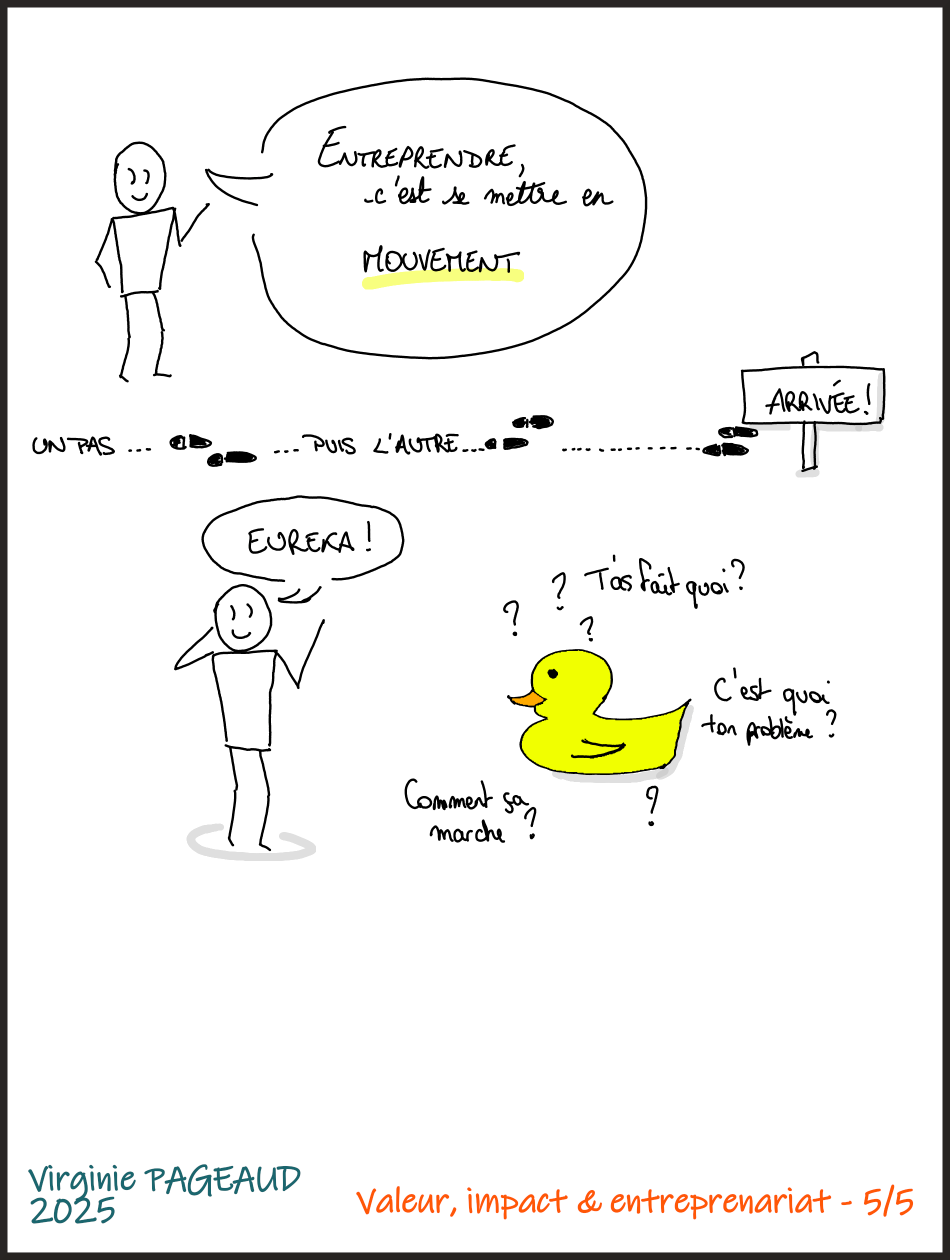 ENTREPRENDRE,
c'est se mettre en
MOUVEMENT
ARRIVÉE!
UN PAS ... ... PUIS L'AUTRE... ..............
EUREKA !
? ? ?
T'as fait quoi?
C'est quoi
ton problème ?
Comment ça
marche ?
?
Virginie PAGEAUD
2025
Valeur, impact & entreprenariat - 5/5